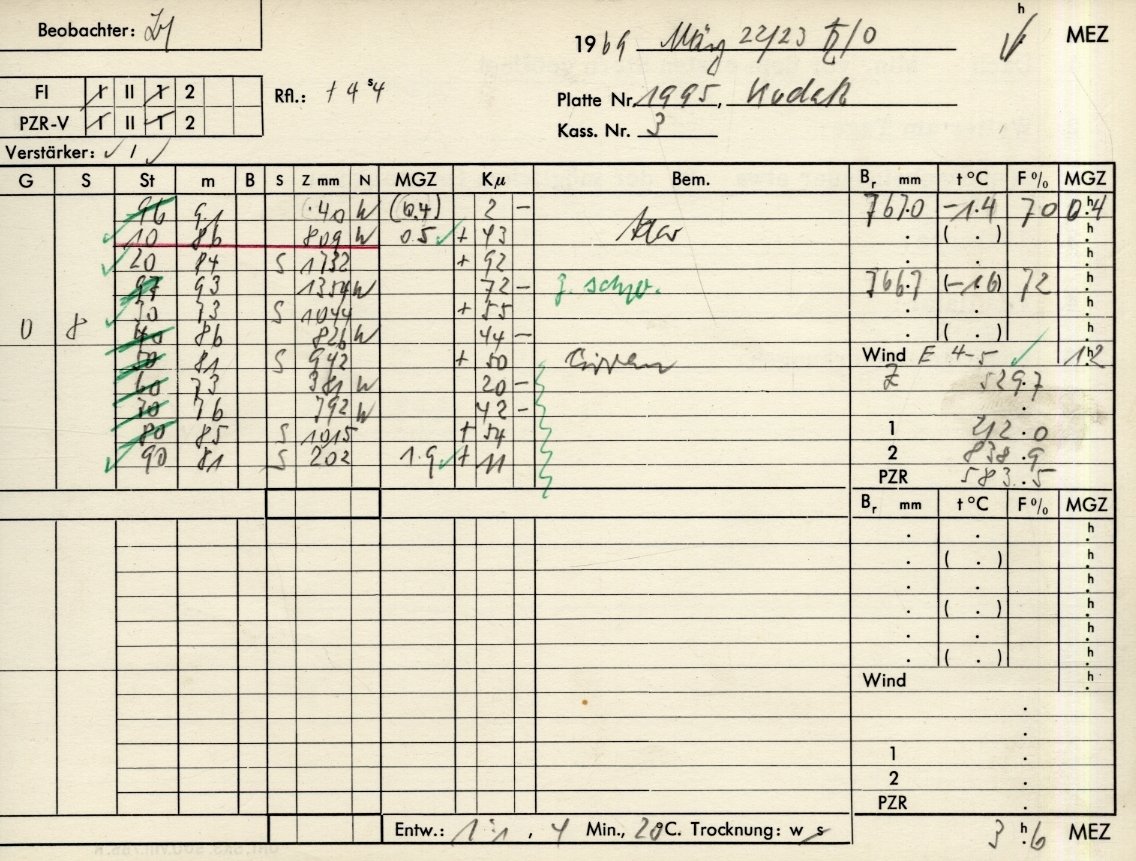 Beobachter:
1969 März 22/23 /0 h MEZ
FI I II 1 2 Rfl.: +4ˢ4
Platte Nr. 1995, Kodak
PZR-V I II 1 2
Kass. Nr. 3
Verstärker: 1
G S St m B S Z mm N MGZ Kμ Bem. Bᵣ mm t °C F % MGZ
96 9.1 .40 W (0.4) 2 - 767.0 -1.4 70 0ʰ.4
10 86 809 W 0.5 + 43 klar . ( . ) h
20 84 S 1732 + 92 . h
97 93 1354 W 72 - 766.7 (-1.6) 72 h
30 73 S 1044 + 55 . h
0 8 40 86 826 W 44 - . ( . ) h
50 81 S 942 + 50 Cirren Wind E 4-5 1ʰ.2
60 73 381 W 20 - Z 529.7
70 76 792 W 42 - .
80 85 S 1015 + 54 1 212.0
90 81 S 202 1.9 + 11 2 838.9
PZR 583.5
Bᵣ mm t °C F % MGZ
. . h
. ( . ) h
. . h
. ( . ) h
. . h
. ( . ) h
Wind h
.
.
1 .
2 .
PZR .
Entw.: 1:1, 4 Min., 20 C. Trocknung: w s 3ʰ.6 MEZ